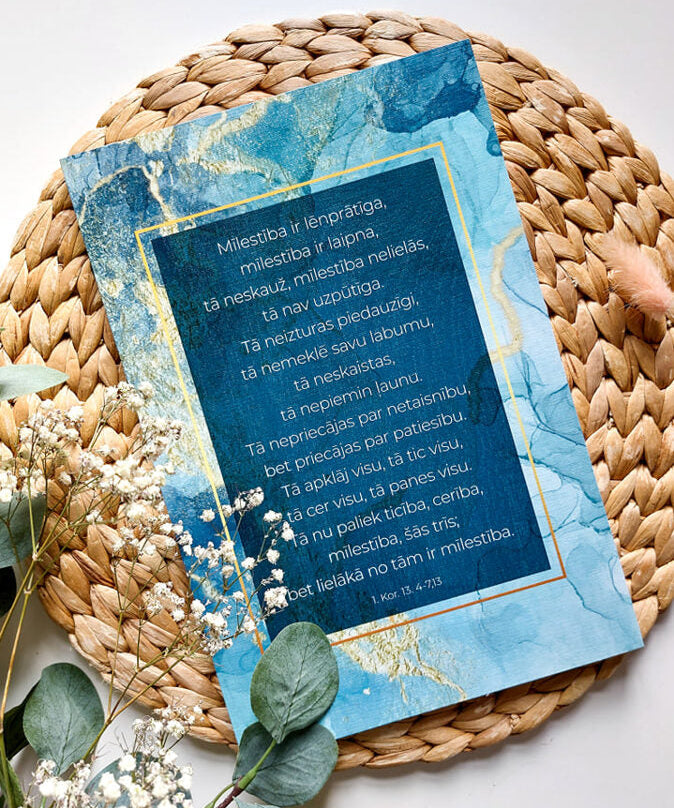 Mīlestība ir lēnprātīga,
mīlestība ir laipna,
tā neskauž, mīlestība nelielās,
tā nav uzpūtīga.
Tā neizturas piedauzīgi,
tā nemeklē savu labumu,
tā neskaistas,
tā nepiemin ļaunu.
Tā nepriecājas par netaisnību,
bet priecājas par patiesību.
Tā apklāj visu, tā tic visu,
tā cer visu, tā panes visu.
Tā nu paliek ticība, cerība,
mīlestība, šās trīs;
bet lielākā no tām ir mīlestība.
1. Kor. 13. 4-7,13